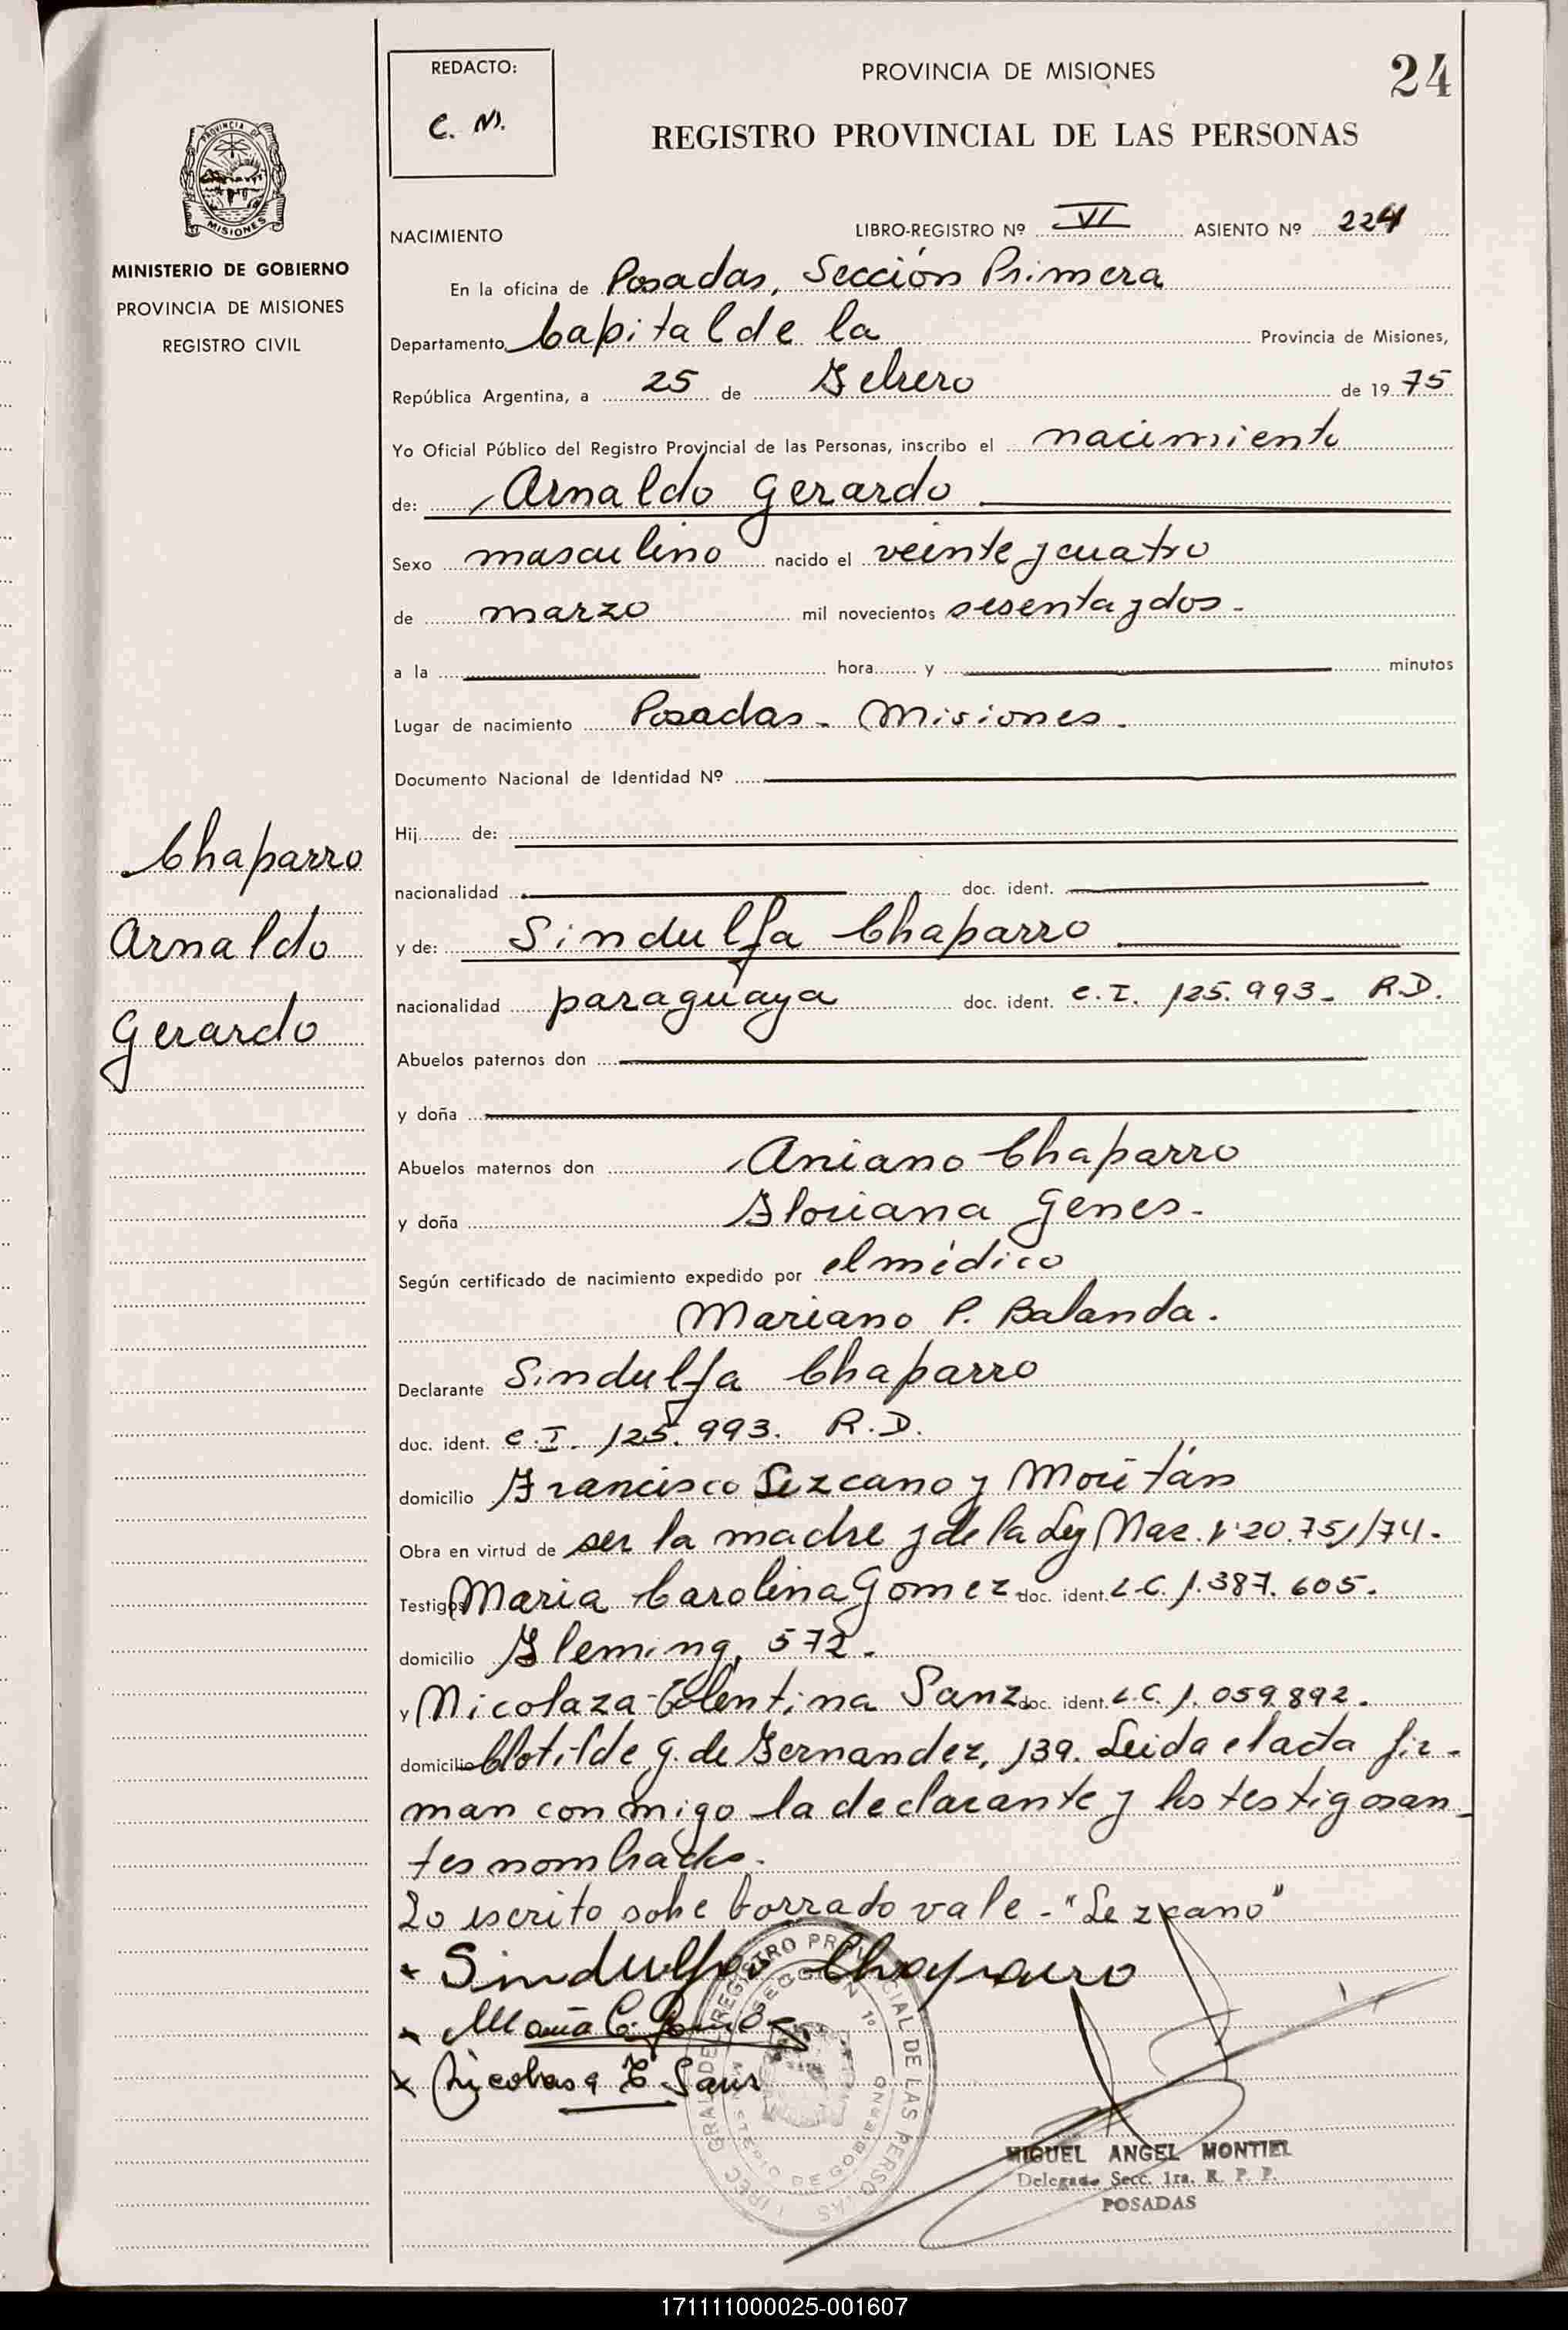 REDACTO:
C. M.
PROVINCIA DE MISIONES
24
REGISTRO PROVINCIAL DE LAS PERSONAS
PROVINCIA DE
MISIONES
MINISTERIO DE GOBIERNO
PROVINCIA DE MISIONES
REGISTRO CIVIL
NACIMIENTO
LIBRO-REGISTRO Nº VI ASIENTO Nº 224
En la oficina de Posadas, Sección Primera
Departamento Capital de la Provincia de Misiones,
República Argentina, a 25 de Febrero de 1975
Yo Oficial Público del Registro Provincial de las Personas, inscribo el nacimiento
de: Arnaldo Gerardo
Sexo masculino nacido el veinte y cuatro
de marzo mil novecientos sesenta y dos -
a la hora y minutos
Lugar de nacimiento Posadas - Misiones -
Documento Nacional de Identidad Nº
Hij de:
nacionalidad doc. ident.
y de: Sindulfa Chaparro
nacionalidad paraguaya doc. ident. C.I. 125.993 - R.D.
Abuelos paternos don
y doña
Abuelos maternos don Aniano Chaparro
y doña Floriana Genes -
Según certificado de nacimiento expedido por el médico
Mariano P. Balanda.
Declarante Sindulfa Chaparro
doc. ident. C.I. 125.993. R.D.
domicilio Francisco Lezcano y Moritán
Obra en virtud de ser la madre y de la Ley Nac. Nº 20.751/74 -
Testigos Maria Carolina Gomez doc. ident. L.C. 1.387.605.
domicilio Fleming, 572 -
y Nicolaza Tolentina Sanz doc. ident. L.C. 1.059.892.
domicilio Clotilde G. de Fernandez, 139. Leida el acta fir-
man conmigo la declarante y los testigos an-
tes nombrados.
Lo escrito sobre borrado vale - "Lezcano"
x Sindulfa Chaparro
x Maria C. Gomez
x Nicolasa T. Sanz
DIREC. GRAL. DEL REGISTRO PROVINCIAL DE LAS PERSONAS
SECCION 1º
MINISTERIO DE GOBIERNO
MIGUEL ANGEL MONTIEL
Delegado Secc. 1ra. R. P. P.
POSADAS
Chaparro
Arnaldo
Gerardo
171111000025-001607